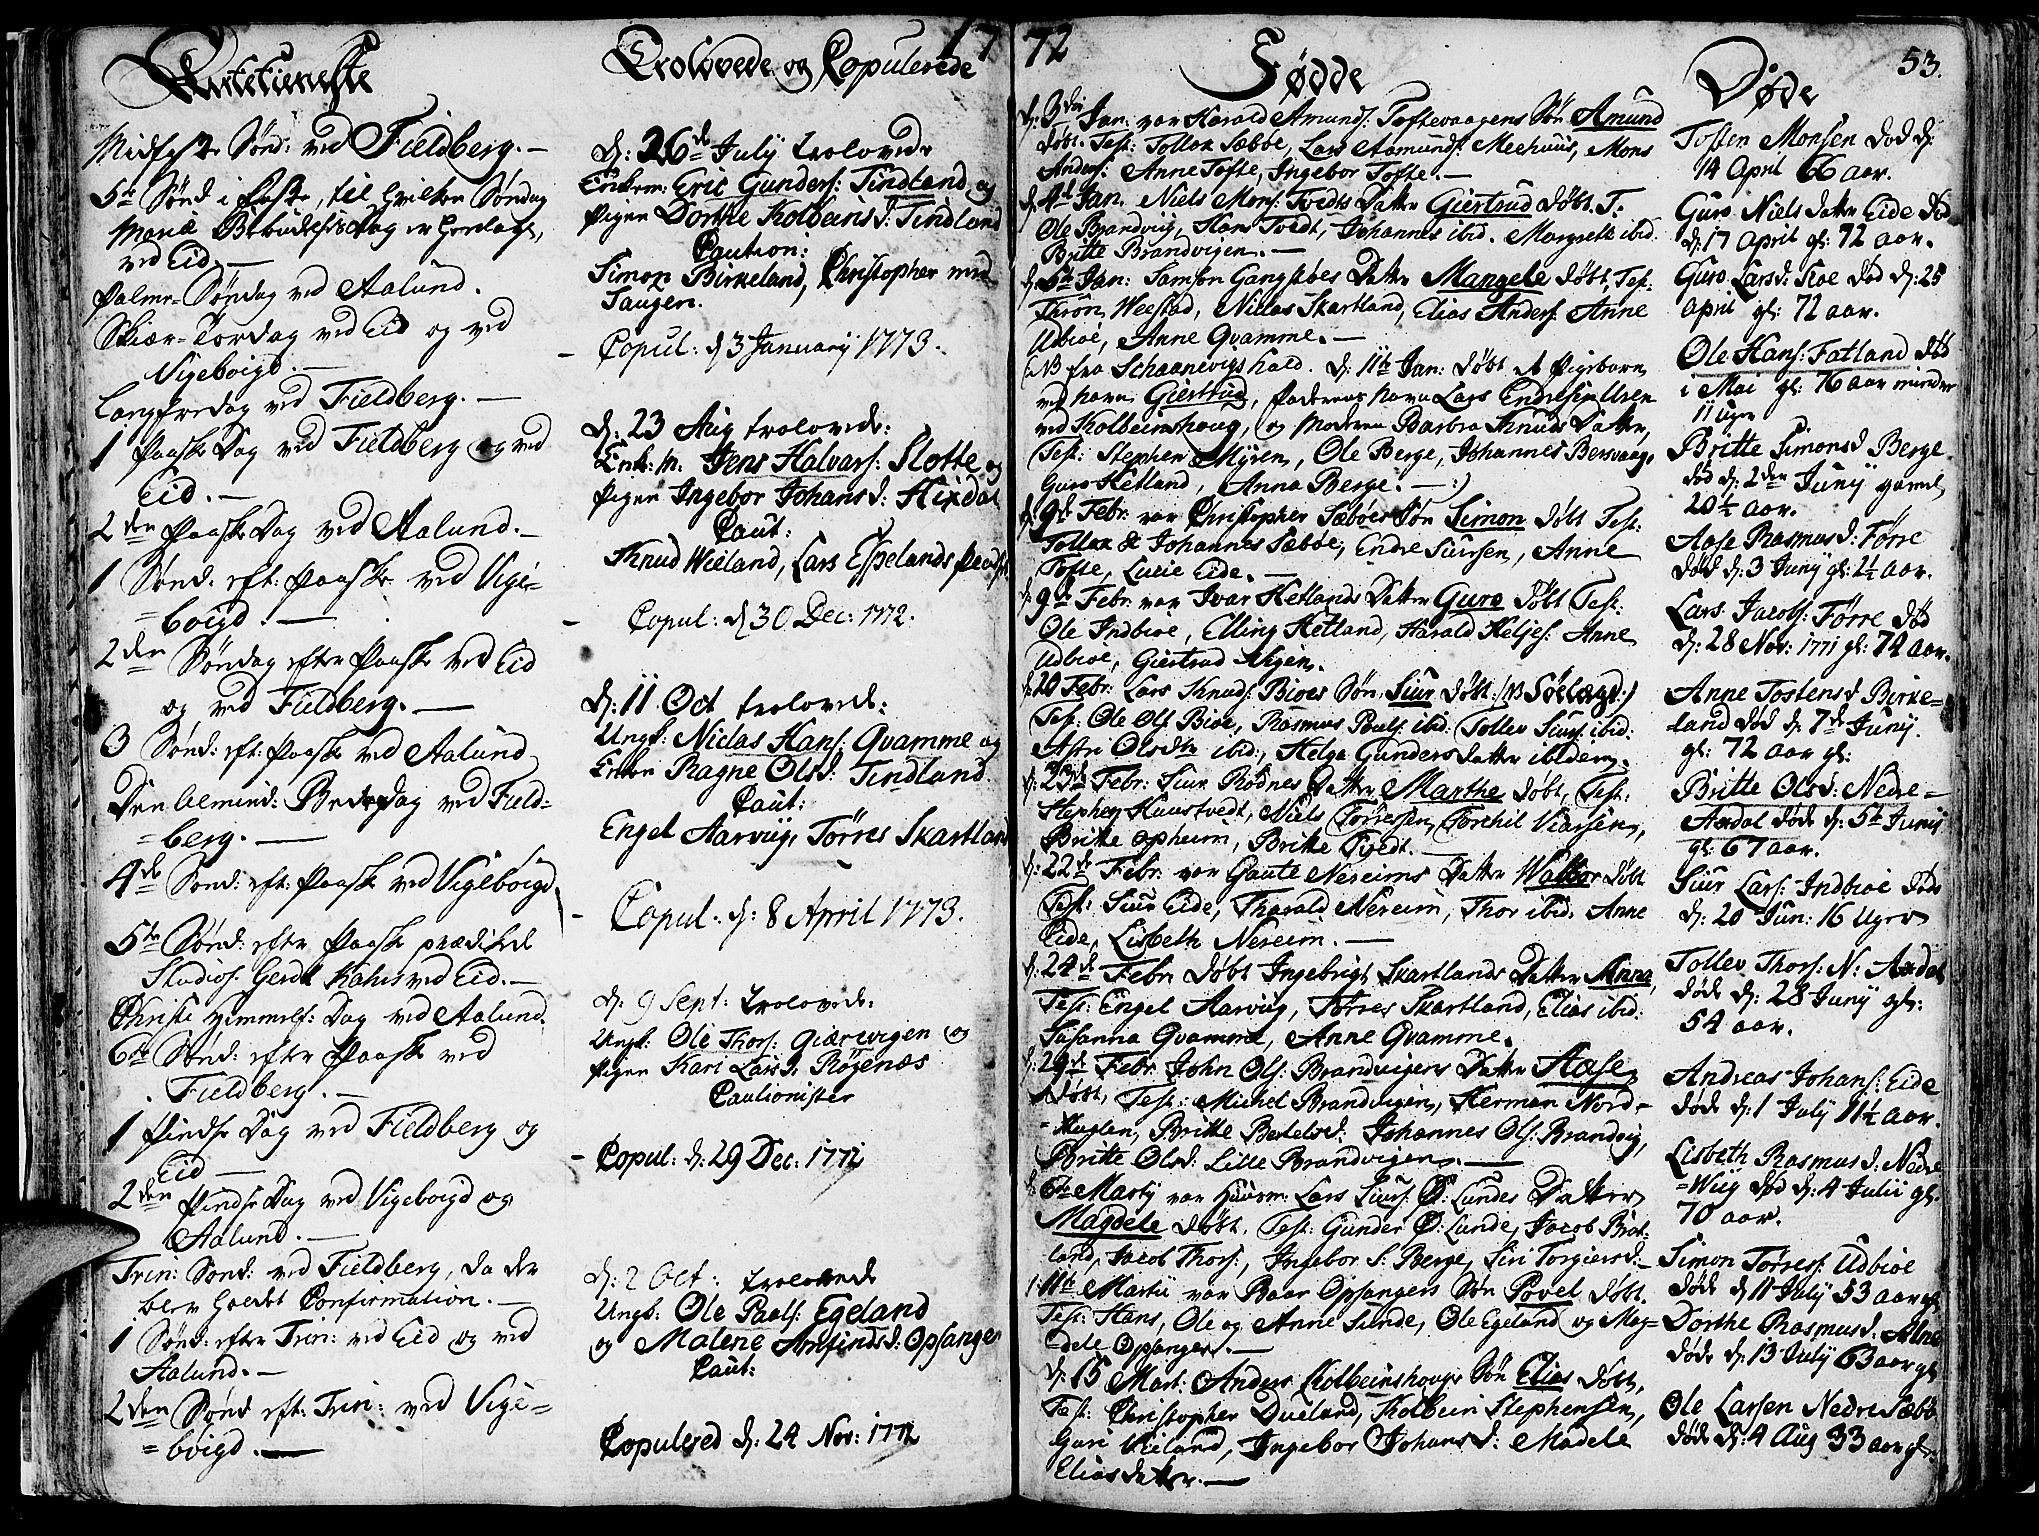 1772
53.
Kirketieneste
Midfaste Sønd: ved Fieldberg. —
5te Sønd i Faste, til hvilken Søndag
Mariæ Bebudelses Dag er henlagt,
ved Eid. —
Palme-Søndag ved Aalund.
Skiær-Torsdag ved Eid og ved
Vigebøigd. —
Langfredag ved Fieldberg. —
1 Paaske Dag ved Fieldberg og ved
Eid. —
2den Paaske Dag ved Aalund. —
1 Sønd: eft: Paaske ved Vige=
=bøigd. —
2den Søndag efter Paaske ved Eid
og ved Fieldberg. —
3 Sønd: eft: Paaske ved Aalund
Den Almind: Bededag ved Field=
=berg. —
4de Sønd: eft: Paaske ved Vigebøigd
5te Sønd: efter Paaske prædiked
Studios: Gerdt Kahrs ved Eid. —
Christi Himmelf: Dag ved Aalund.
6te Sønd: efter Paaske ved
Fieldberg. —
1 Pindse Dag ved Fieldberg og
Eid —
2den Pindse Dag ved Vigebøigd og
Aalund. —
Trin: Sønd: ved Fieldberg, da der
blev holdet Confirmation. —
1 Sønd: efter Trin: ved Eid og ved
Aalund. —
2den Sønd eft: Trin: ved Vige=
=bøigd. —
Trolovede og Copulerede
d: 26de July trolovede
Enkem: Eric Gunders: Tindland og
Pigen Dorthe Kolbeins d: Tindland
Caution:
Simon Birkeland, Christopher
Taugen.
— Copul: d 3 January 1773.
d: 23 Aug trolovede:
Enk: m: Jens Halvars: Slotte og
Pigen Ingebor Johans d: Hixdal
Caut:
Knud Wieland, Lars Espelands
— Copul: d 30 Dec: 1772.
d: 11 Oct trolovede:
Ungk: Niclas Hans: Qvamme og
Enken Ragne Ols d: Tindland.
Caut:
Engel Aarvig, Tørres Skartland
— Copul: d: 8 April 1773.
d: 9 Sept: trolovede:
Ungk: Ole Thors: Giærevigen og
Pigen Kari Lars d. Røgenæs
Cautionister
— Copul: d: 29 Dec: 1772
d: 2 Oct: trolovede
Ungk: Ole Paals: Egeland
og Malene Arnfinds d: Opsanger
Caut:
Copulered d: 24 Nov: 1772
Fødde
d: 3die Jan: var Harald Amunds: Toftevaagens Søn Amund
døbt. Test: Tollox Sæbøe, Lars Aamunds: Meehuus, Mons
Anders: Anne Tofte, Ingebor Tofte. —
d. 4de Jan. Niels Mons: Tvedts Datter Giertrud døbt. T:
Ole Brandvig, Hans Tvedt, Johannes ibid. Margrette ibid.
Britte Brandvigen. —
d: 5te Jan: Samson Gangstøes Datter Mangele døbt, Test:
Thron Weestad, Niclas Skartland, Elias Anders: Anne
Udbioe, Anne Qvamme. —
(NB fra Schaanevigs Kald. d: 11te Jan: døbt et Pigebarn
ved Navn Giertrud, Faderens Navn Lars Endresen Uren
ved Kolbeinshoug, og Moderen Barbra Knuds Datter,
Test: Stephen Myren, Ole Berge, Johannes Bersvaag,
Guro Hetland, Anna Berge. — :)
d: 9de Febr: var Christopher Sæbøes Søn Simon døbt Test:
Tollox & Johannes Sæbøe, Endre Siursen, Anne
Tofte, Lucie Eide. —
d: 9de Febr: var Ivar Hetlands Datter Guro døbt Test:
Ole Indbioe, Elling Hetland, Harald Heljes: Anne
Udbioe, Giertrud
d: 20 Febr: Lars Knuds: Bioes Søn Siur døbt (: NB Søelægd :)
Test: Ole Ols: Bioe, Rasmus Pouls: ibid. Tollev Siurs: ibid:
Astri Olsdtr ibid:, Helga Gunders datter ibidem.
d: 23de Febr: Siur Rødnes Datter Marthe døbt, Test:
Stephen Haustvedt, Niels Torresen, Torchil Viarsen,
Britte Opheim, Britte Tvedt.
d: 22de Febr: var Gaute Nereims Datter Walbor døbt
Test: Siur Eide, Tharald Nereim, Thor ibid: Anne
Eide, Lisbeth Nereim. —
d: 24de Febr døbt Ingebrigt Skartlands Datter Anna,
Test: Engel Aarvig, Tørres Skartland, Elias ibid:
Susanna Qvamme, Anne Qvamme.
d: 29de Febr: John Ols: Brandvigens Datter Aase
døbt, Test: Michel Brandvigen, Herman Nord=
=Huglen, Britte Bertels d: Johannes Ols: Brandvig,
Britte Ols d: Lille Brandvigen. —
d: 6te Martij var Huusm: Lars Siurs: Ø: Lundes Datter
Magdele døbt. Test: Gunder Ø: Lunde, Jacob Brat=
land, Jacob Thors:, Ingebor S: Berge, Siri Torgiers d: —
d: 11te Martii var Baar Opsangers Søn Povel døbt.
Test: Hans, Ole og Anne Sunde, Ole Egeland og Mag=
dele Opsanger. —
d: 15 Mart: Anders Kolbeinshougs Søn Elias døbt,
Test: Christopher Dueland, Kolbein Stephensen,
Guri Wieland, Ingebor Johans d: Madele
Elias datter. —
Døde
Tosten Monsen død d:
14 April 66 aar.
Guro Niels datter Eide død
d: 17 April gl: 72 aar.
Guro Lars d: Toe død d: 25
April gl: 72 aar.
Ole Hans: Fatland død
i Mai gl: 76 aar mindre
11 Uger
Britte Simons d Berge
død d: 2den Juny gamel
20½ aar.
Aase Rasmus d: Førre
død d: 3 Juny gl: 1½ aar.
Lars Jacobs: Førre død
d: 28 Nov: 1771 gl: 74 aar.
Anne Tostens d Birke=
land død d 7de Juny.
gl: 72 aar gl:
Britte Ols d: Nedre=
Axdal døde d: 5te Junij
gl: 67 aar.
Siur Lars: Indbioe døde
d: 20 Jun: 16 Uger
Tollev Thors: N: Axdal
døde d: 28 Junij gl:
54 aar.
Andreas Johans: Eide
døde d: 1 July 11½ aar.
Lisbeth Rasmus d: Nedre
=Wiig død d: 4 Julii gl.
70 aar.
Simon Tørres: Udbioe
døde d 11 July 53 aar gl.
Dorthe Rasmus d: Alne
døde d: 13 July 63 aar gl
Ole Larsen Nedre Sæbø
døde d: 4 Aug 33 aar gl.